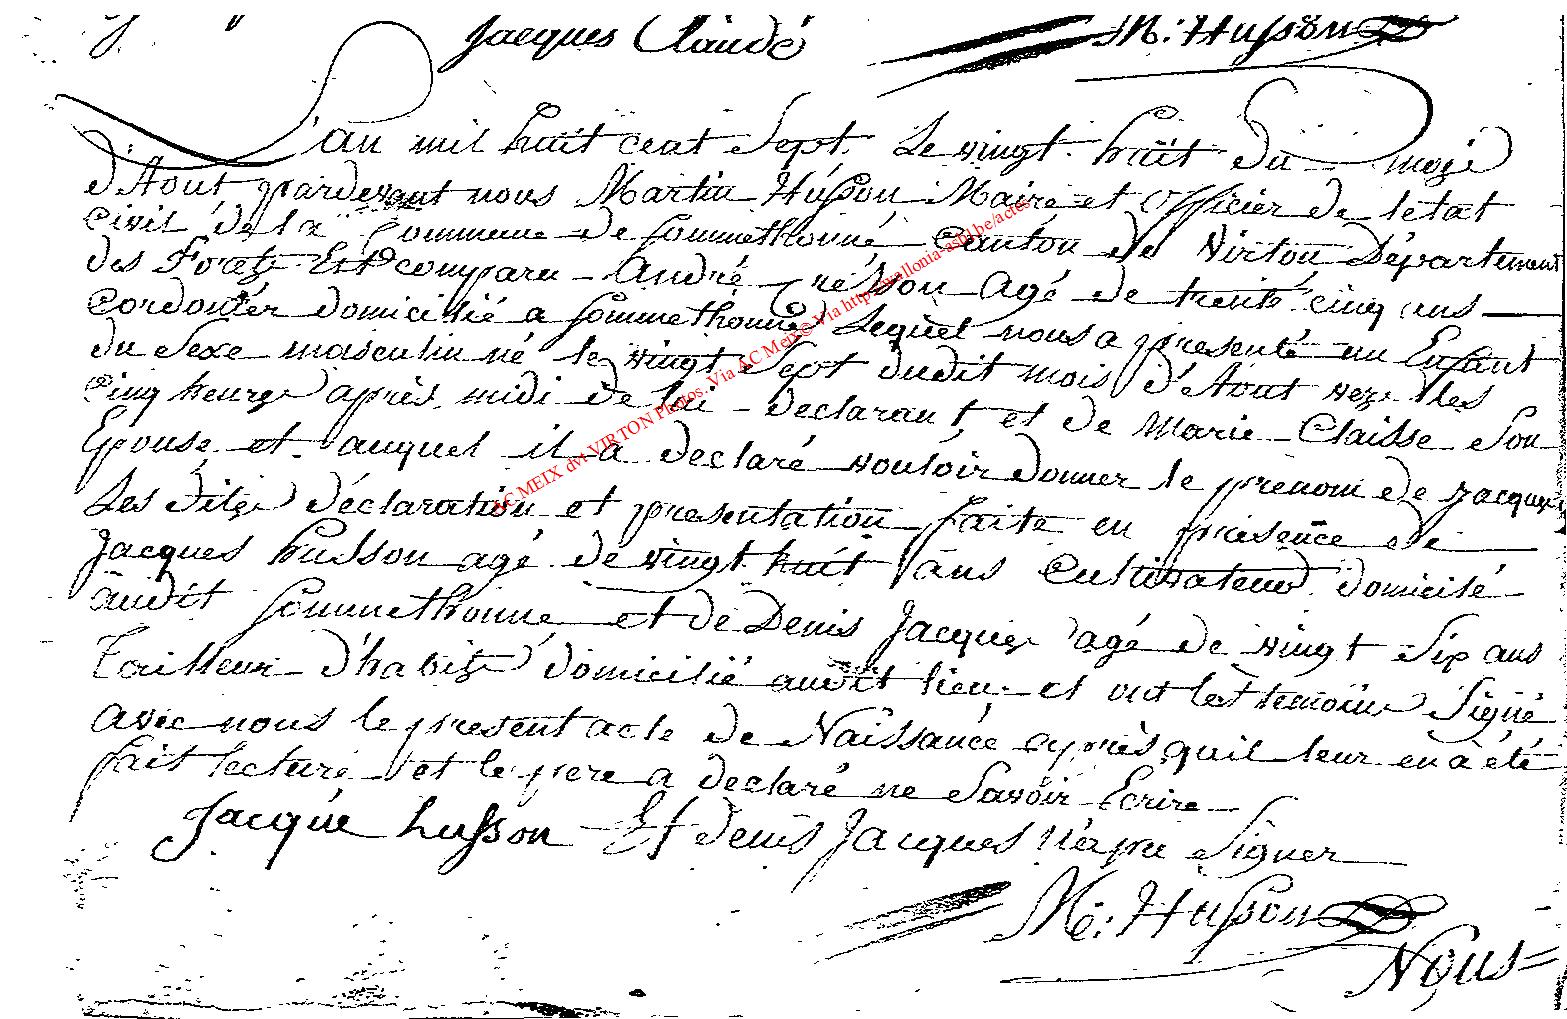 Jacques Claude M: Husson
L'an mil huit cent Sept. Le vingt huit du mois
d'Aout pardevant nous Martin Husson Maire et officier de letat
civil de la Commune de Sommethonne Canton de Virton Département
des Forets Est comparu André Cresson agé de trente cinq ans
Cordonier domicilié a Sommethonne Lequel nous a presenté un Enfant
du Sexe masculin né le vingt Sept dudit mois d'Aout vers les
Cinq heures après midi de lui declarant et de Marie Claisse Son
Epouse et auquel il a declaré vouloir donner le prenom de Jacques
Les dites déclaration et presentation faite en présence de
Jacques husson agé de vingt huit ans Cultivateur domicilé
audit Sommethonne et de Denis Jacques agé de vingt Six ans
Tailleur d'habits domicilié audit lieu et ont les temoins Signé
avec nous le present acte de Naissance après quil leur en a été
fait lecture et le pere a declaré ne Savoir Ecrire
Jacque husson Et denis Jacques n'a pu Signer
M: Husson
Nous
AC MEIX dvt VIRTON Photos. Via AC Meix© Via http://wallonia-asbl.be/actes